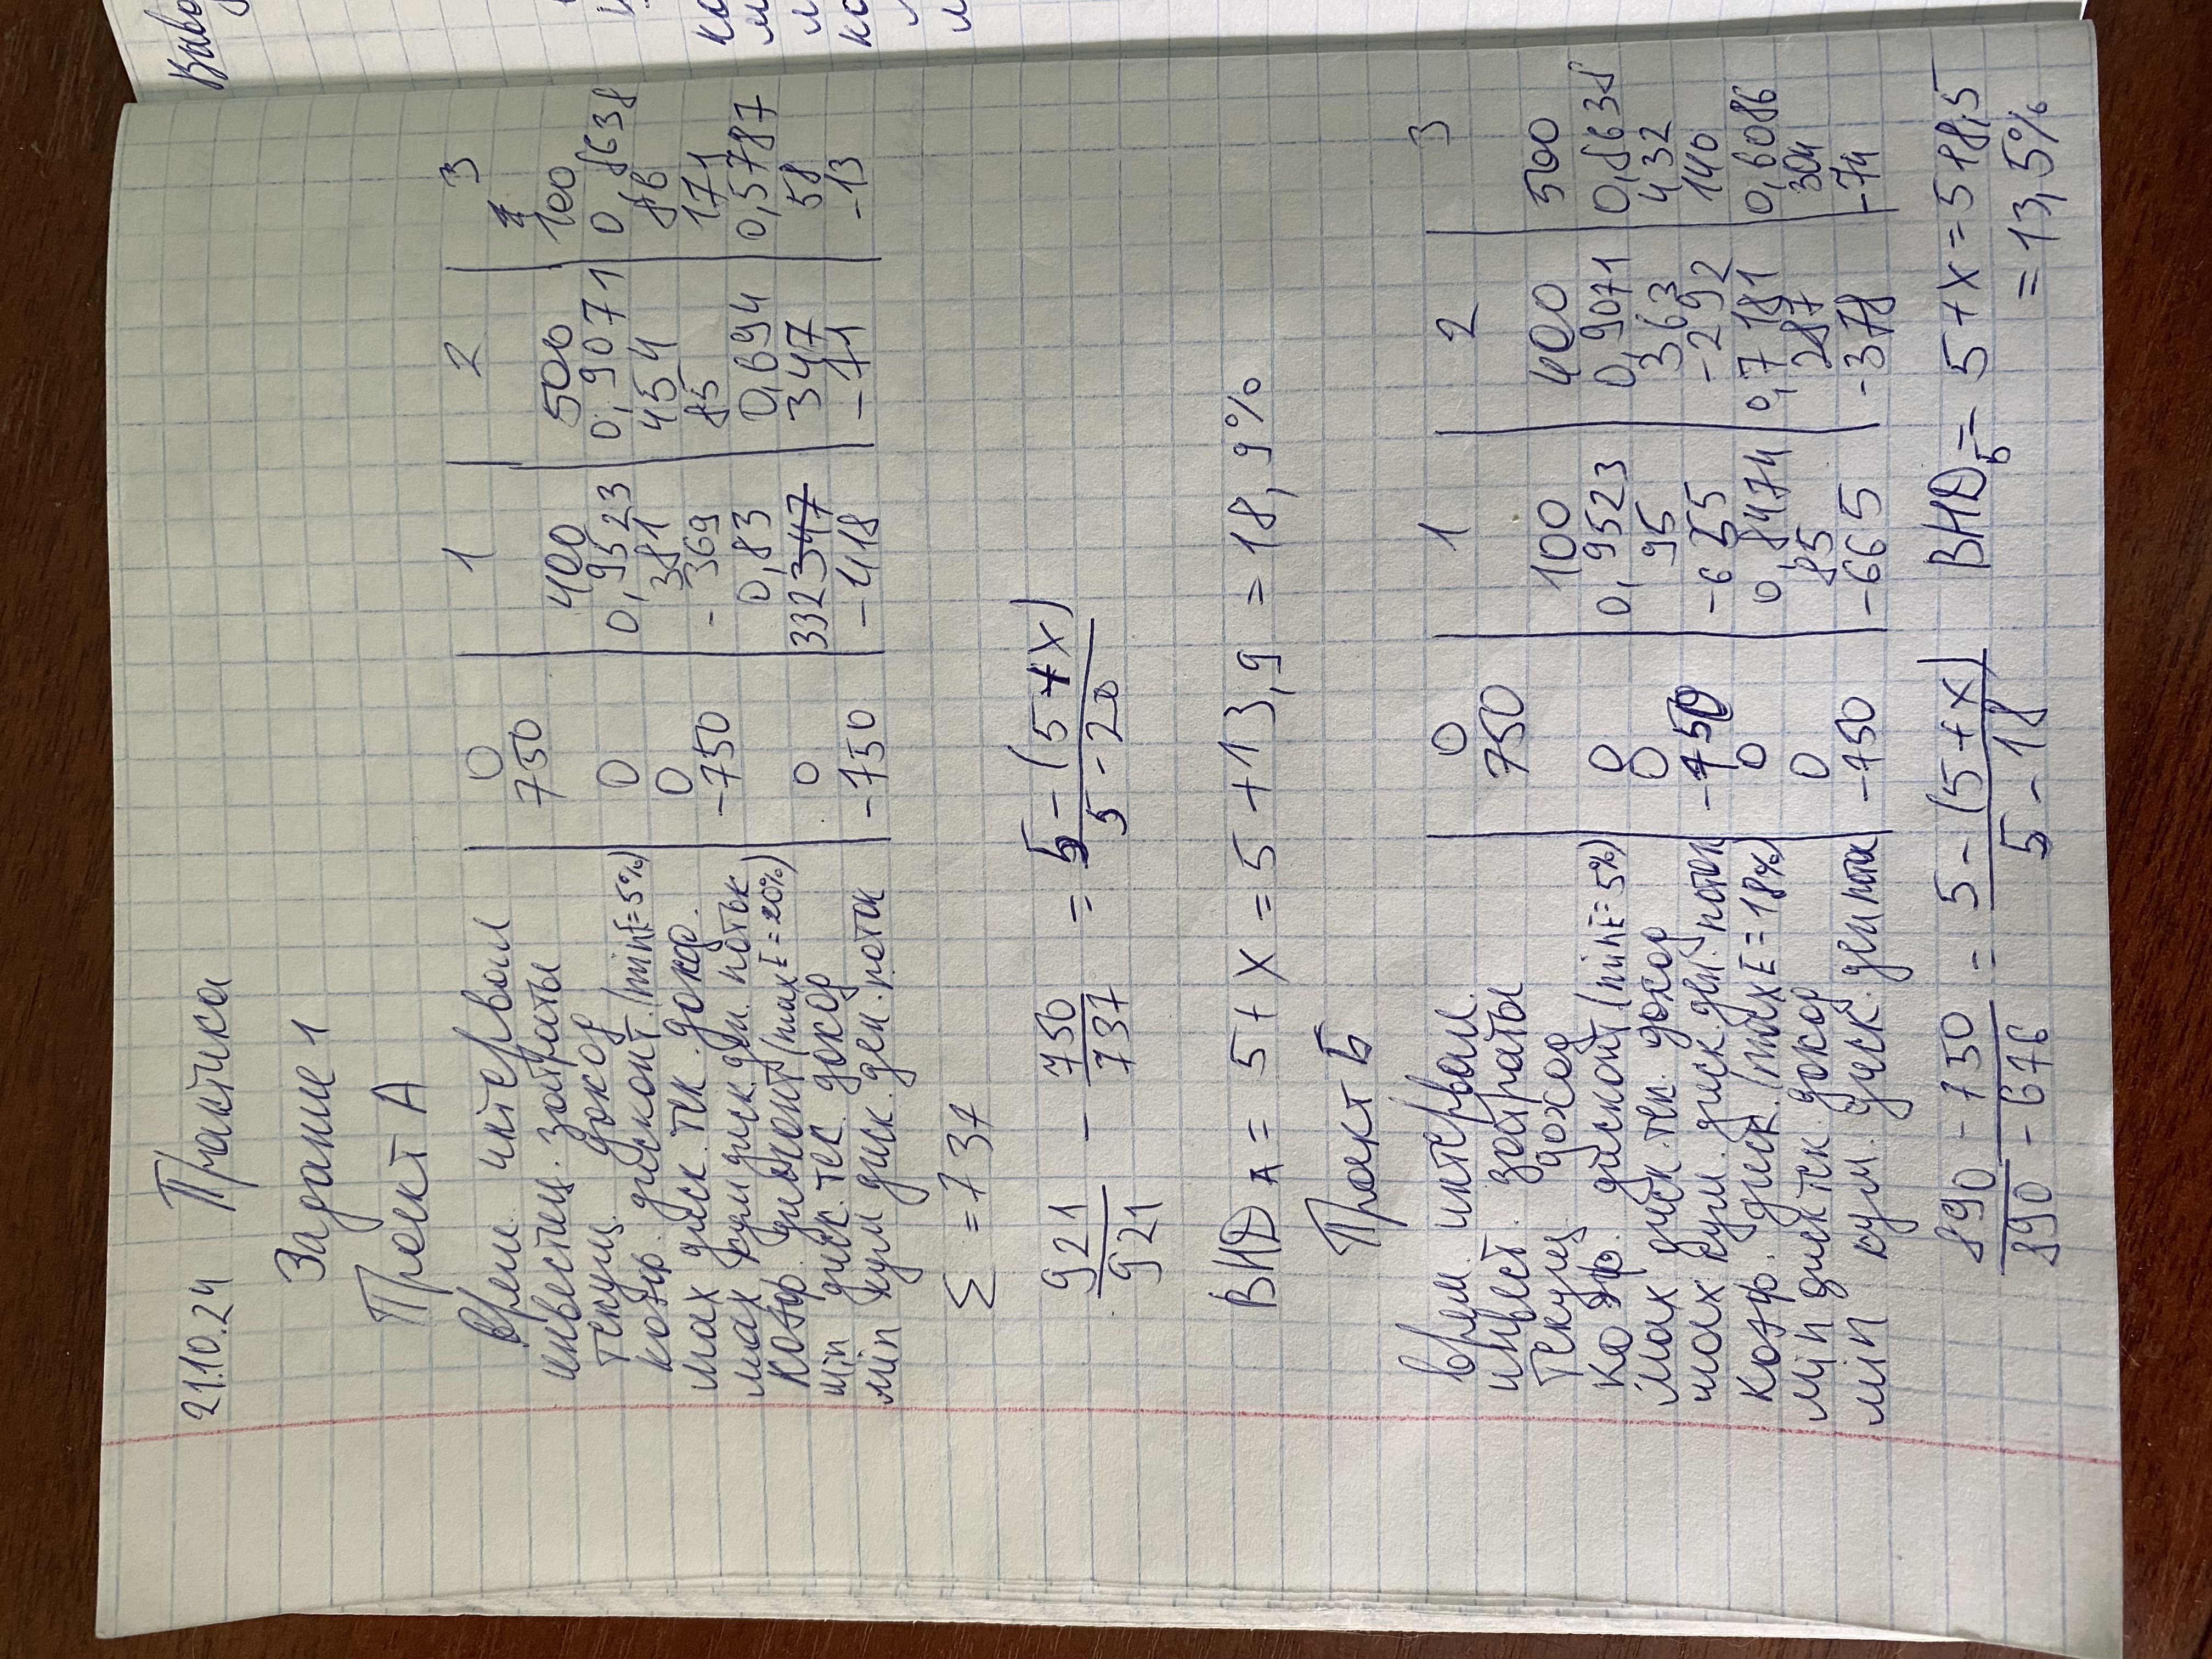 21.10.24 Практика
Задание 1
Проект А
врем. интервал 0 1 2 3
инвестиц. затраты 750
текущ. доход 400 500 100
коэф. дисконт. (min E = 5%) 0 0,9523 0,9071 0,8638
мах диск. тек. доход. 0 381 454 86
мах кум диск. ден. поток -750 -369 85 171
коэф. дисконт (max E = 20%) 0,83 0,694 0,5787
min диск. тек. доход 0 332 347 347 58
min кум диск. ден. поток -750 -418 -71 -13
Σ = 737
921 - 750 = 5 - (5+x)
921 737 5 - 20
ВНД А = 5 + x = 5 + 13,9 = 18,9%
Проект Б
врем. интервал. 0 1 2 3
инвест. затраты 750
текущ доход 100 400 500
коэф. дисконт (min E = 5%) 0 0,9523 0,9071 0,8638
мах диск. тек. доход 0 95 363 432
мах кум. диск. ден. поток -750 -655 -292 140
коэф. диск. (max E = 18%) 0 0,8474 0,7181 0,6086
min диск тек. доход 0 85 287 304
min кум. диск. ден поток -750 -665 -378 -74
890 - 750 = 5 - (5+x) ВНД Б = 5 + x = 5 + 8,5
890 - 676 5 - 18 = 13,5%